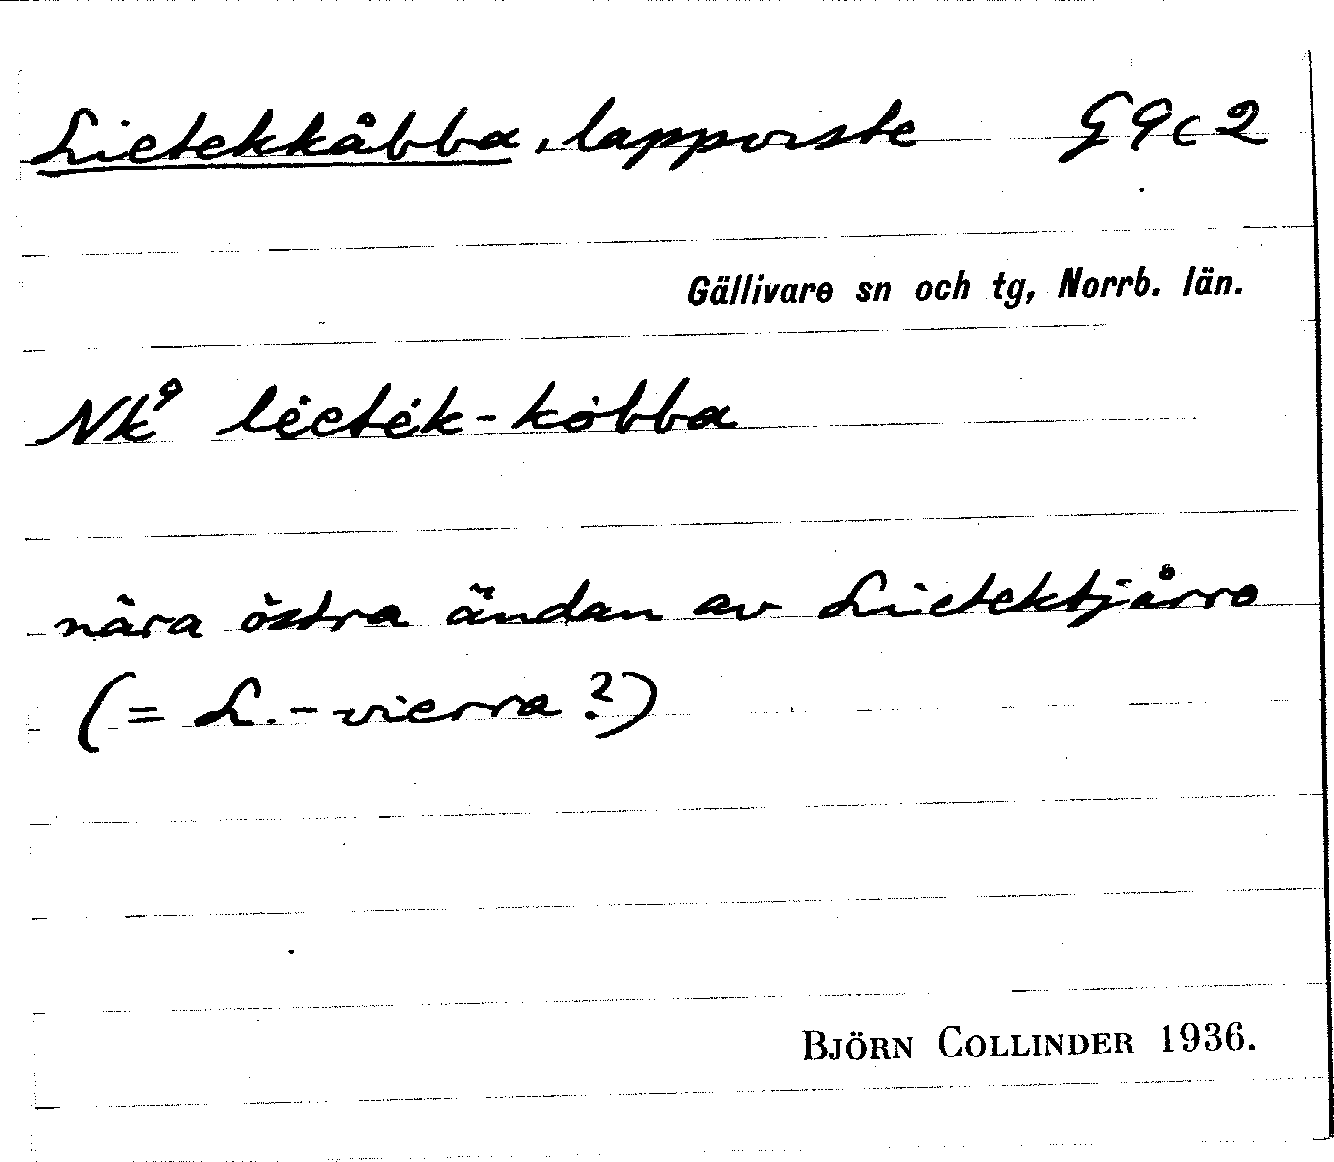 Lietekkåbba, lappviste G9c2
Gällivare sn och tg, Norrb. län.
Nkå lėetėk-kòbba
nära östra ändan av Lietektjårro
(= L.-vierra?)
BJÖRN COLLINDER 1936.